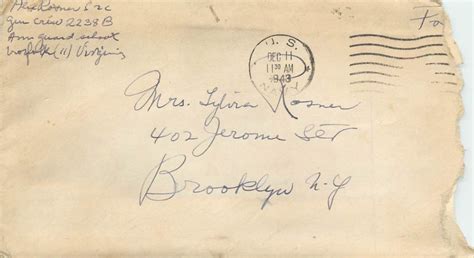 Alex Rosner S 2c
Gun Crew 2238 B
Arm guard school
Norfolk (11) Virginia
U.S.
DEC 11
11 30 AM
1943
NAVY
Mrs. Sylvia Rosner
402 Jerome Str
Brooklyn N.Y